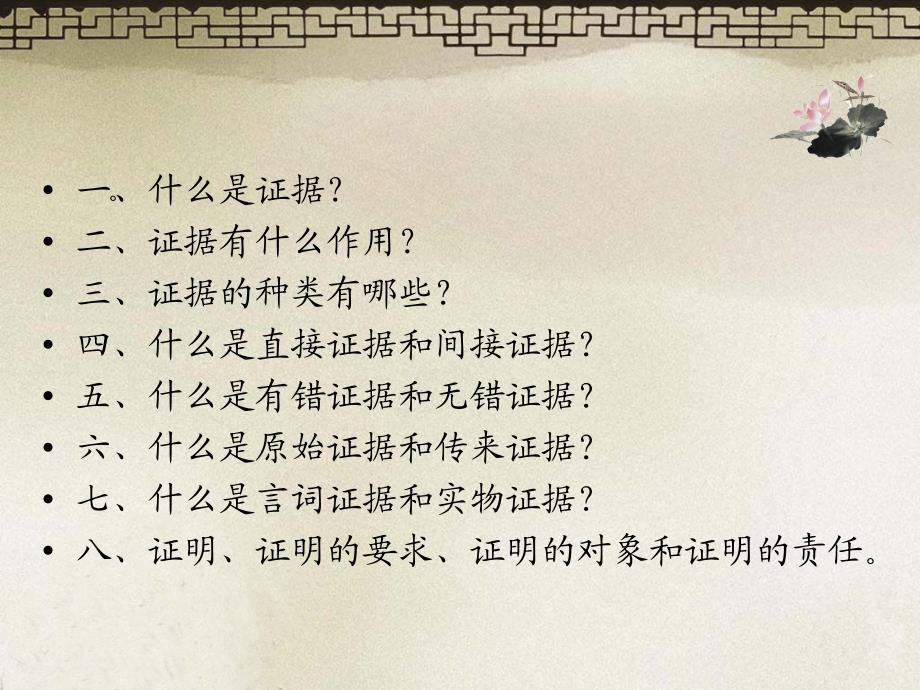 • 一。、什么是证据？
• 二、证据有什么作用？
• 三、证据的种类有哪些？
• 四、什么是直接证据和间接证据？
• 五、什么是有错证据和无错证据？
• 六、什么是原始证据和传来证据？
• 七、什么是言词证据和实物证据？
• 八、证明、证明的要求、证明的对象和证明的责任。